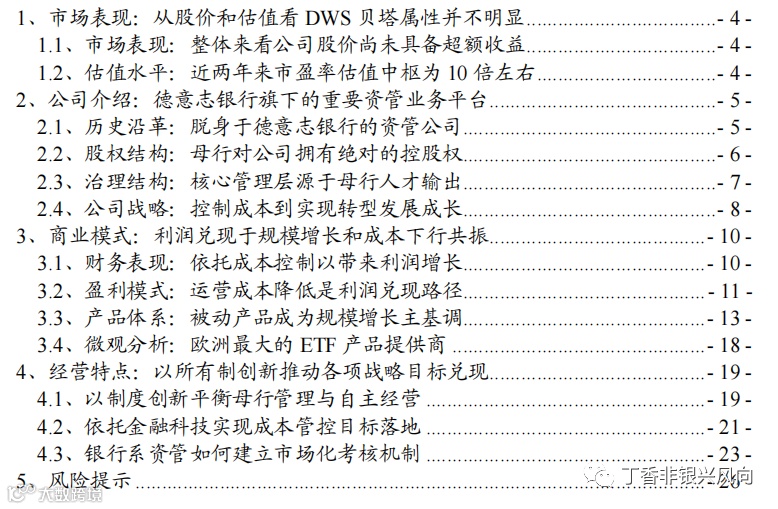 1、市场表现：从股价和估值看 DWS 贝塔属性并不明显 - 4 -
1.1、市场表现：整体来看公司股价尚未具备超额收益 - 4 -
1.2、估值水平：近两年来市盈率估值中枢为 10 倍左右 - 4 -
2、公司介绍：德意志银行旗下的重要资管业务平台 - 5 -
2.1、历史沿革：脱身于德意志银行的资管公司 - 5 -
2.2、股权结构：母行对公司拥有绝对的控股权 - 6 -
2.3、治理结构：核心管理层源于母行人才输出 - 7 -
2.4、公司战略：控制成本到实现转型发展成长 - 8 -
3、商业模式：利润兑现于规模增长和成本下行共振 - 10 -
3.1、财务表现：依托成本控制以带来利润增长 - 10 -
3.2、盈利模式：运营成本降低是利润兑现路径 - 11 -
3.3、产品体系：被动产品成为规模增长主基调 - 13 -
3.4、微观分析：欧洲最大的 ETF 产品提供商 - 18 -
4、经营特点：以所有制创新推动各项战略目标兑现 - 19 -
4.1、以制度创新平衡母行管理与自主经营 - 19 -
4.2、依托金融科技实现成本管控目标落地 - 21 -
4.3、银行系资管如何建立市场化考核机制 - 23 -
5、风险提示
丁香非银兴风向
大数跨境